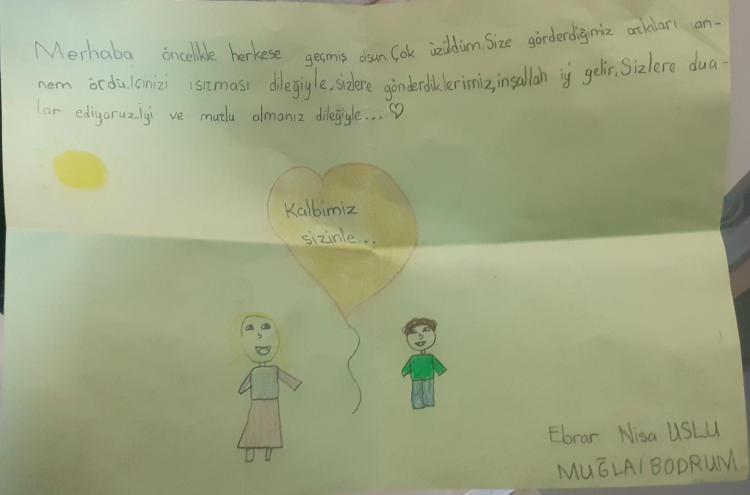 Merhaba öncelikle herkese geçmiş olsun.Çok üzüldüm.Size gönderdiğimiz atkıları an-
nem ördü.İçinizi ısıtması dileğiyle,sizlere gönderdiklerimiz,inşallah iyi gelir.Sizlere dua-
lar ediyoruz.İyi ve mutlu olmanız dileğiyle...♡
Kalbimiz
sizinle...
Ebrar Nisa USLU
MUĞLA/BODRUM